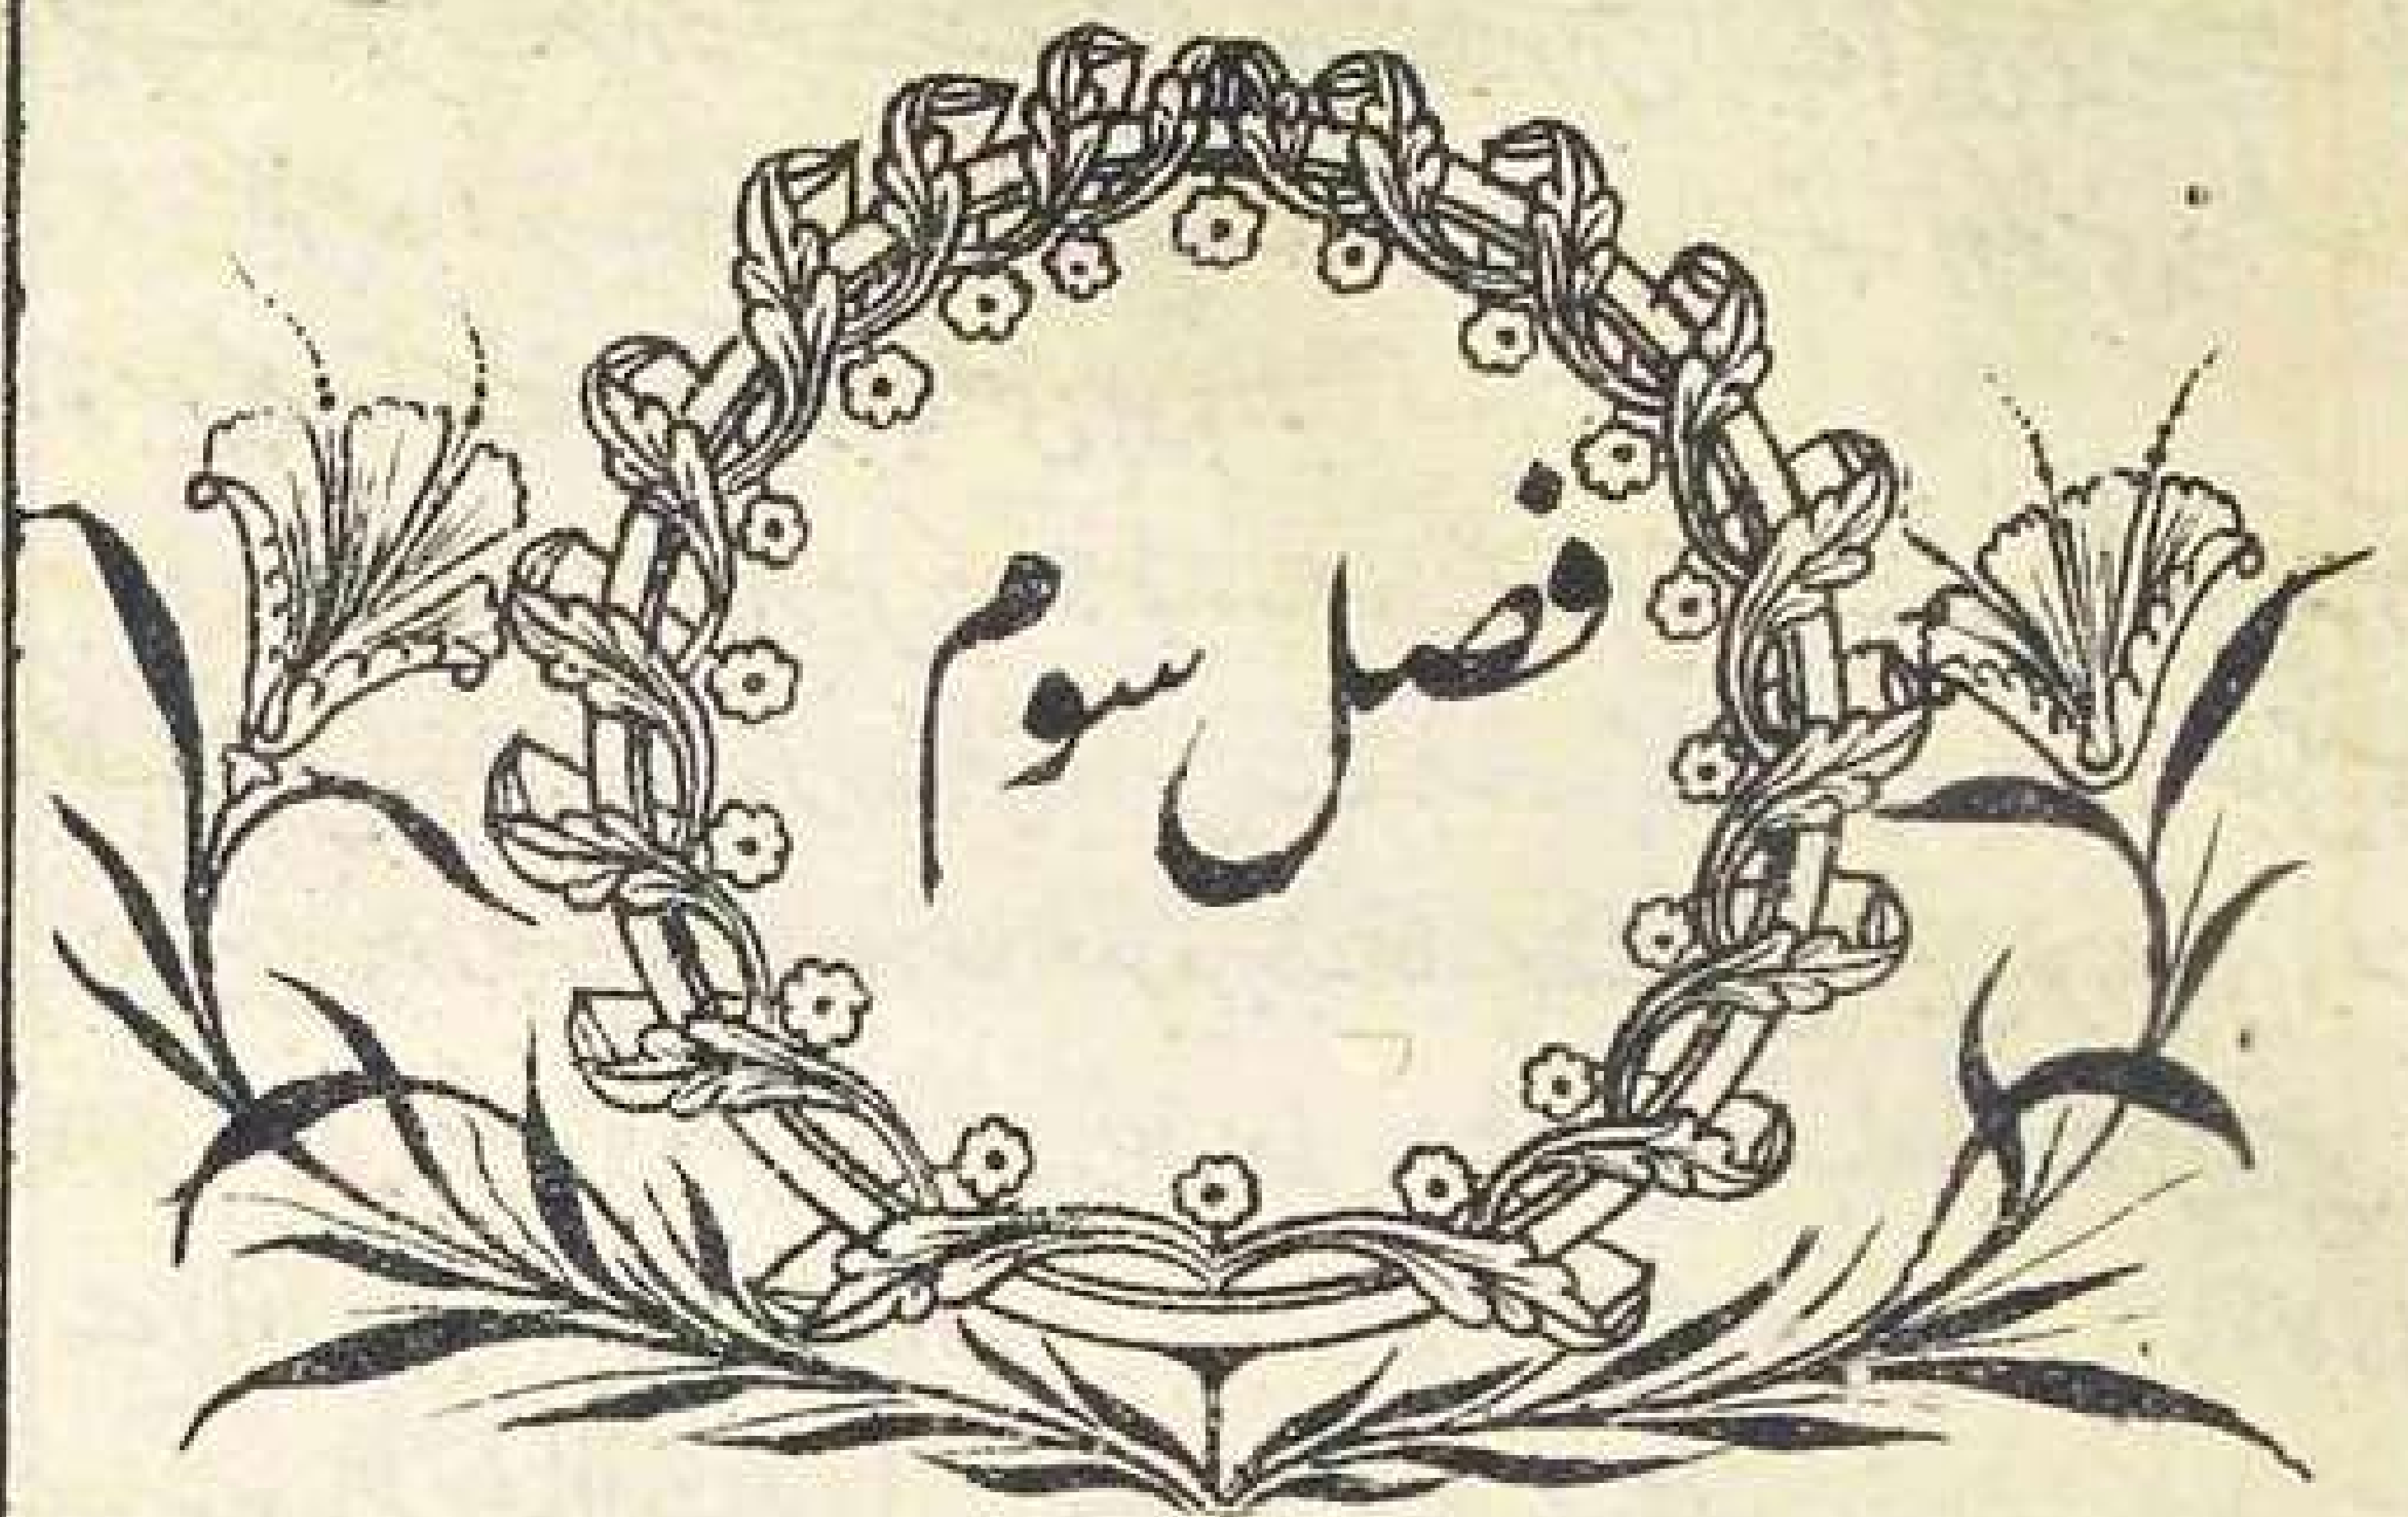 فصل سوم